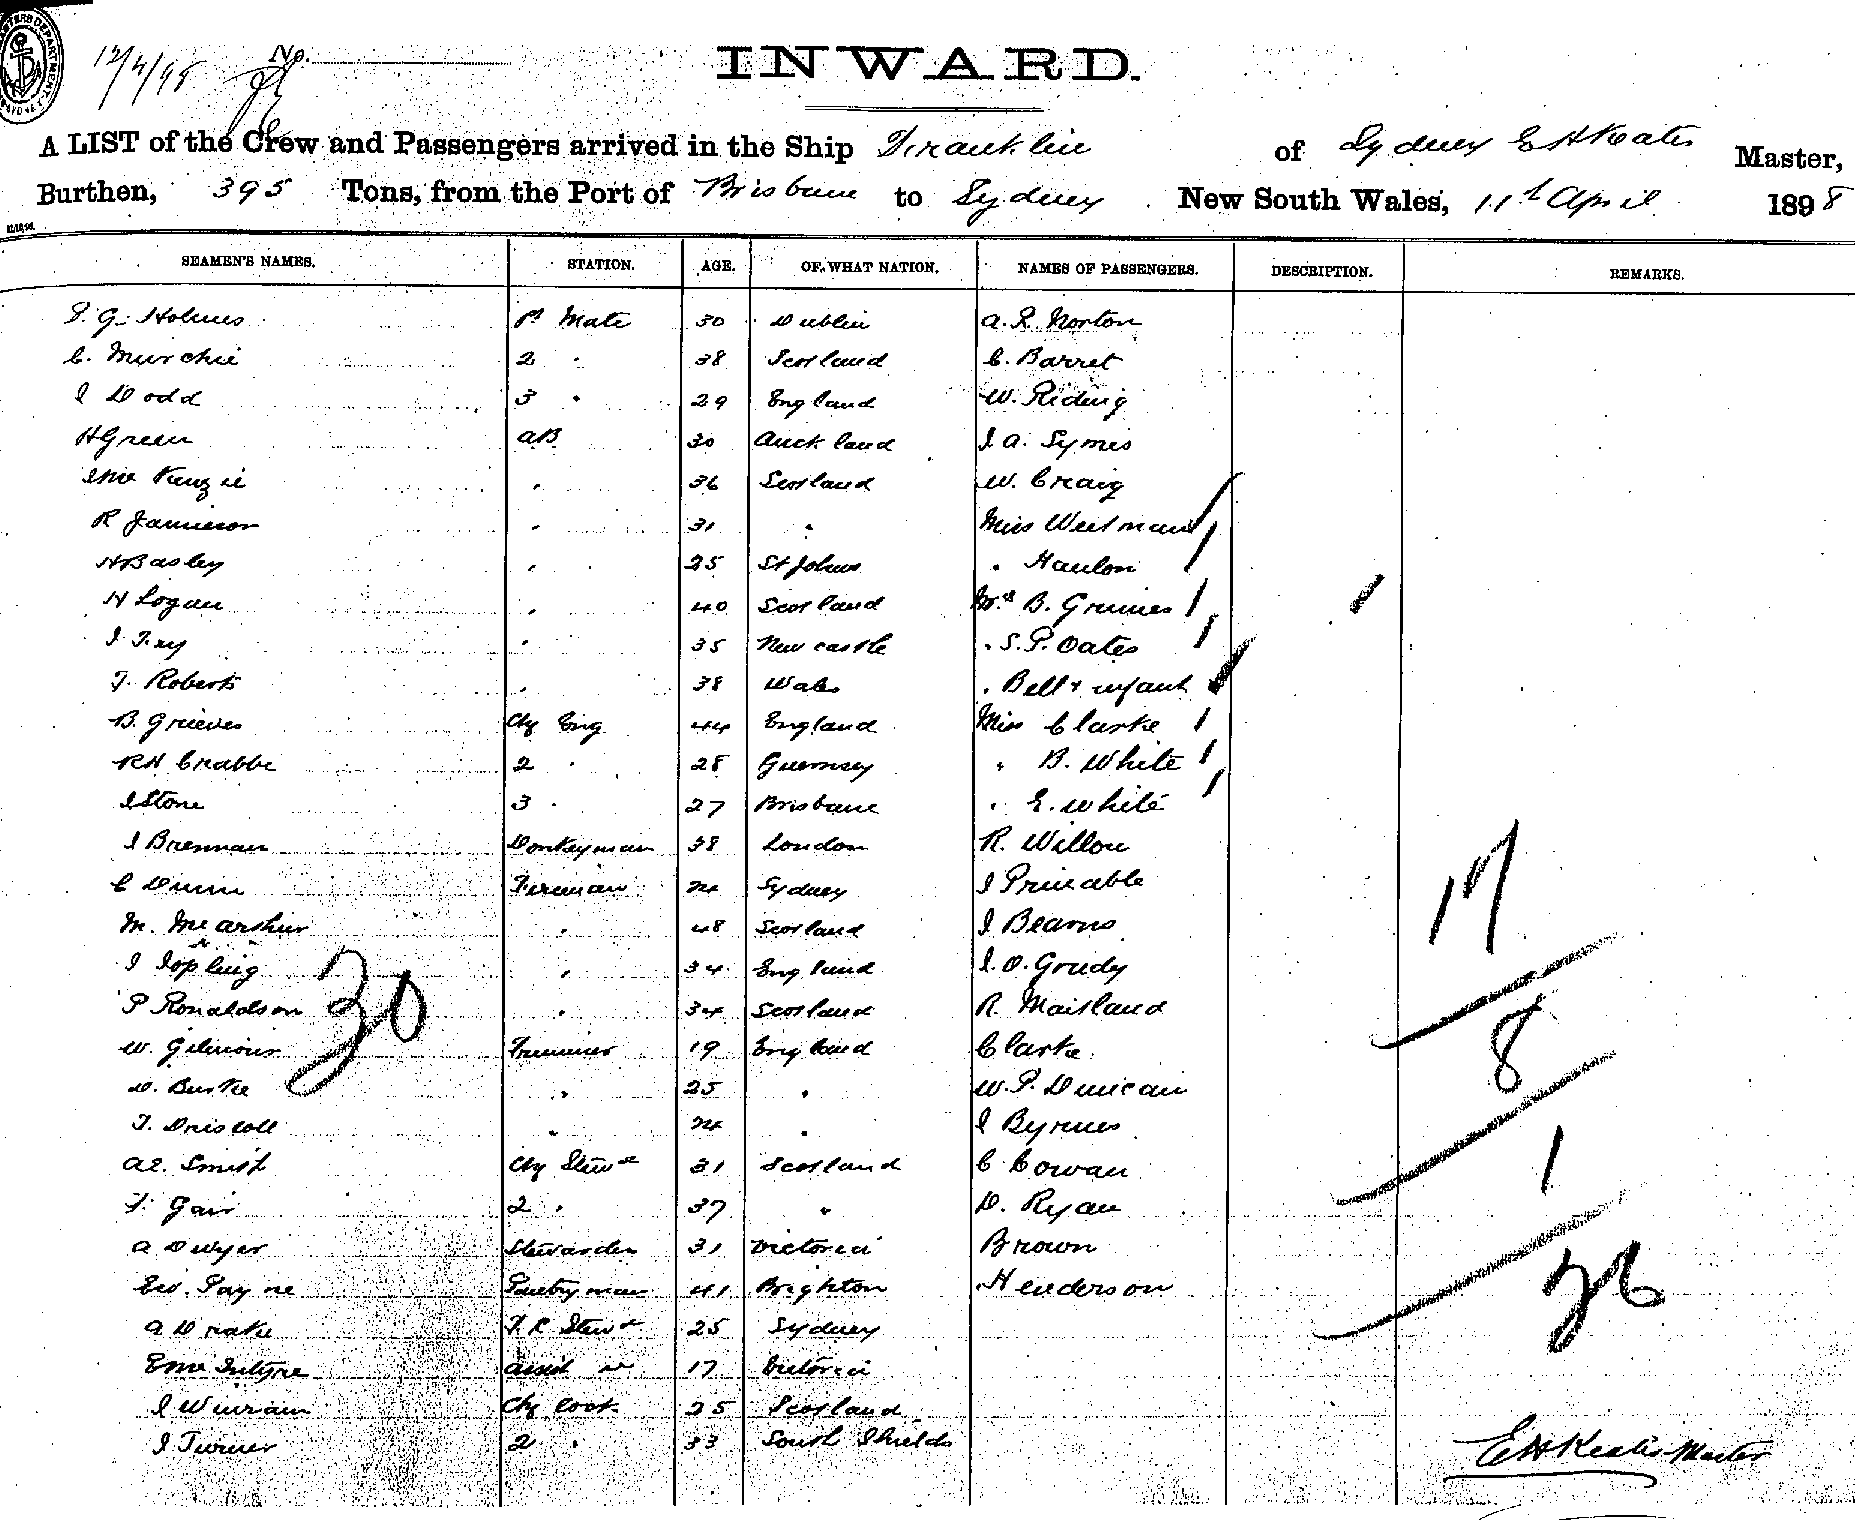 12/4/98 No.
INWARD.
A LIST of the Crew and Passengers arrived in the Ship Franklin of Sydney E H Keates Master,
Burthen, 395 Tons, from the Port of Brisbane to Sydney New South Wales, 11th April 1898
SEAMEN'S NAMES. STATION. AGE. OF WHAT NATION. NAMES OF PASSENGERS. DESCRIPTION. REMARKS.
G. Holmes 1st Mate 30 Dublin A. R. Norton
C. Murchie 2 " 38 Scotland C. Barret
J Dodd 3 " 29 England W. Riding
H Green AB 30 Auckland J A. Symes
J McKenzie " 36 Scotland W. Craig
R Jamieson " 31 " Miss Westman
H Basley " 25 St Johns " Hanlon
H Logan " 40 Scotland Mrs B. Grimes
J Fry " 35 Newcastle " S. P. Oates
T. Roberts " 38 Wales " Bell + infant
B. Grieves Chf Eng 44 England Miss Clarke
R H Crabbe 2 " 28 Guernsey " B. White
J Stone 3 " 27 Brisbane " E. White
J Brennan Donkeyman 38 London R. Willou
C Dunn Fireman 24 Sydney J
M. McArthur " 48 Scotland J Bearns
J Jopling " 34 England J. O. Goudy
P Ronaldson " 34 Scotland R. Maitland
W. Gilmour Trimmer 19 England Clarke
D. Burke " 25 " W. P. Duncan
T. Driscoll " 24 " J Byrnes
A E. Smith Chf Stewd 31 Scotland C Cowan
F. Gair 2 " 37 " D. Ryan
A Dwyer Stewardess 31 Victoria Brown
Ed. Payne Pantryman 41 Brighton Henderson
A Drake F. R Stewd 25 Sydney
E McIntyre Assist " 17 Victoria
J Winram Chf Cook 25 Scotland
J Turner 2 " 33 South Shields
30
17
8
1
26
E H Keates Master